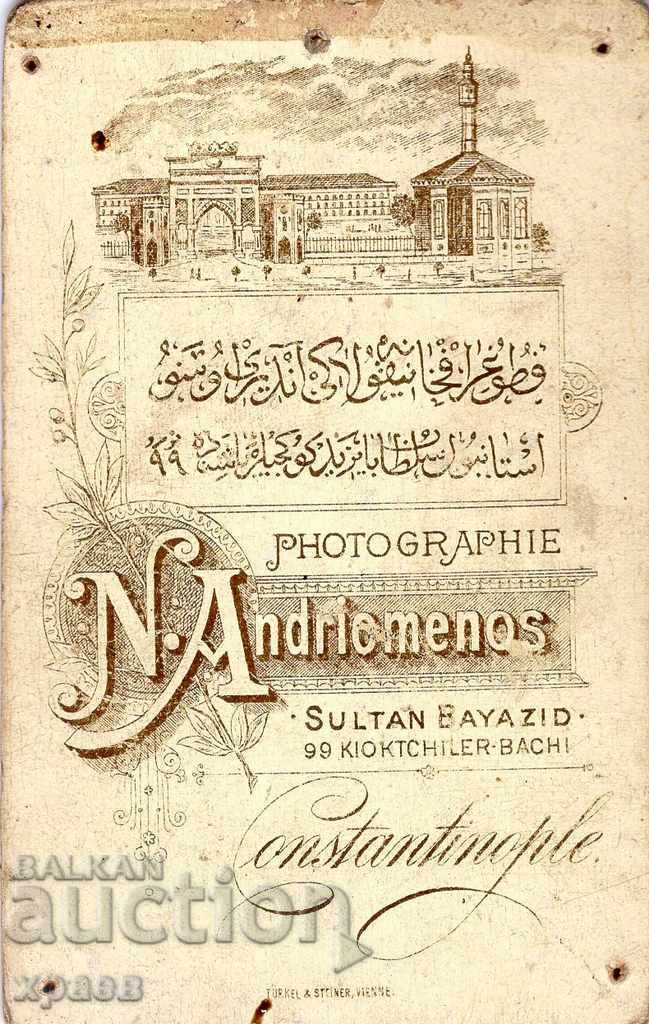 فطوغرافخانه نیقولاکی اندیریومنو
استانبول سلطان بایزید کوکجیلر باشنده ٩٩
PHOTOGRAPHIE
N. Andriomenos
· SULTAN BAYAZID ·
99 KIOKTCHILER-BACHI
Constantinople.
BALKAN
auction
храев
TÜRKEL & STEINER, VIENNE.